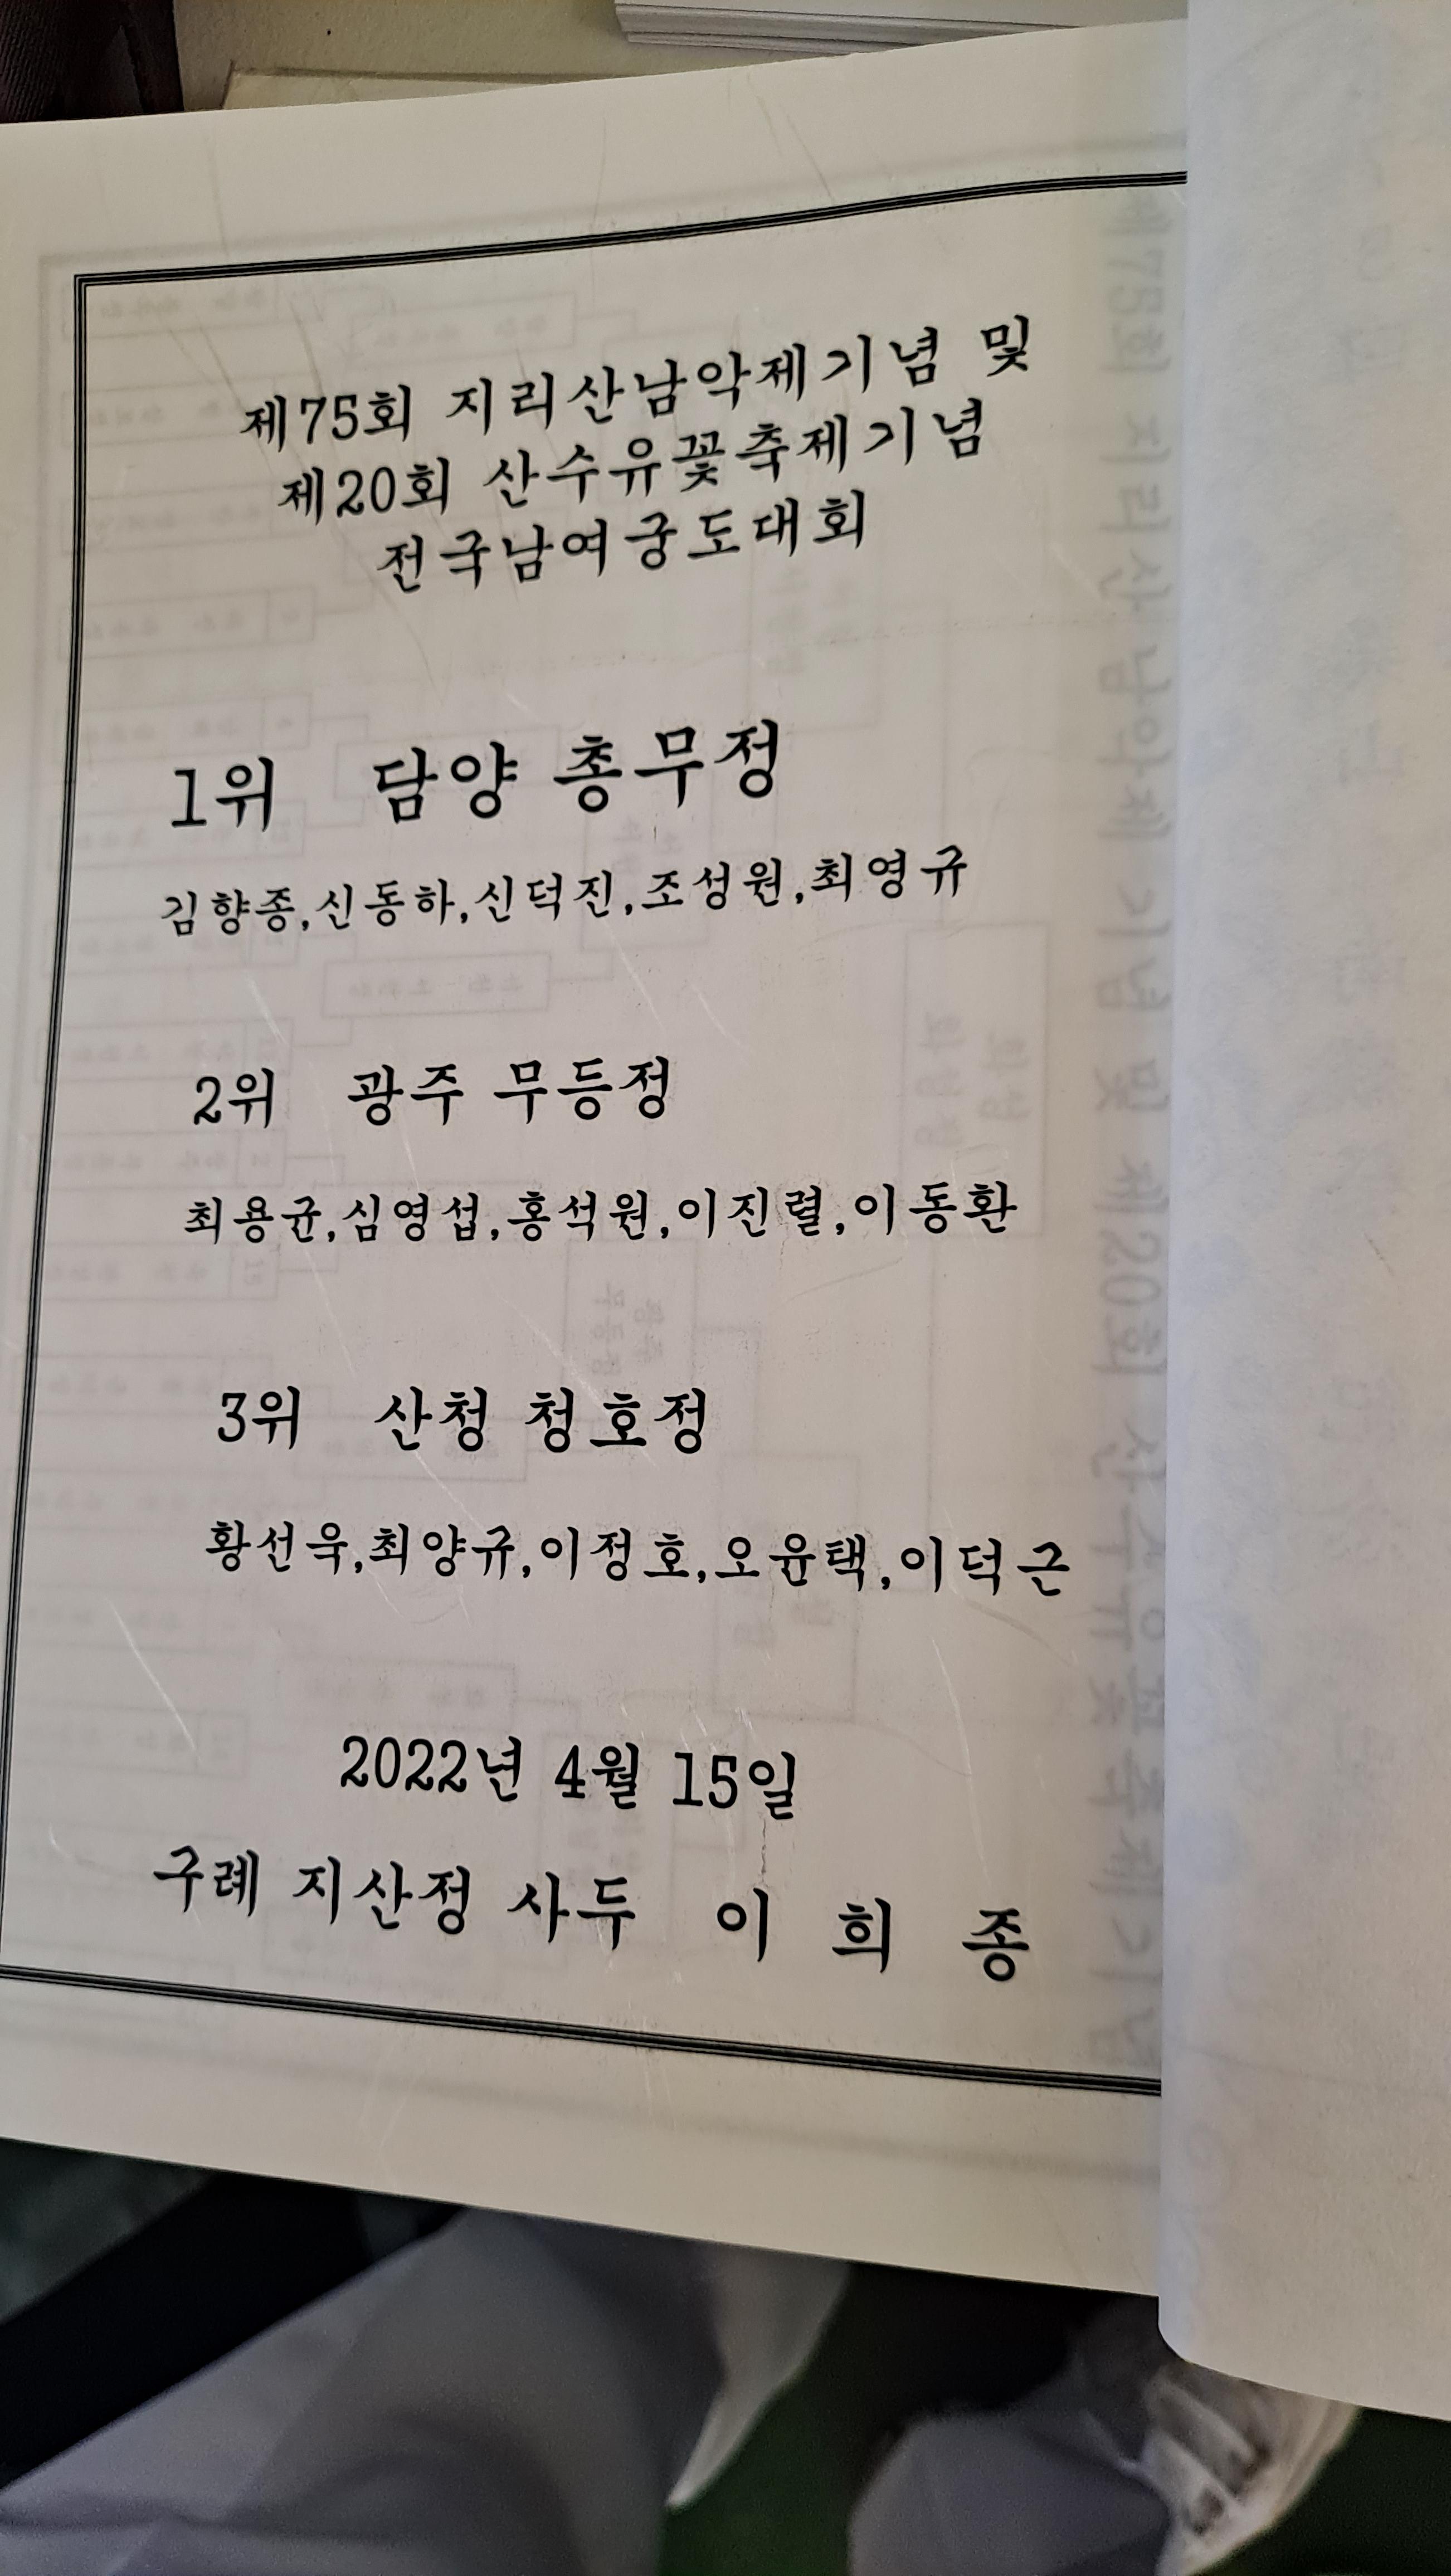 제75회 지리산남악제기념 및
제20회 산수유꽃축제기념
전국남여궁도대회
1위 담양 총무정
김향종,신동하,신덕진,조성원,최영규
2위 광주 무등정
최용균,심영섭,홍석원,이진렬,이동환
3위 산청 청호정
황선욱,최양규,이정호,오윤택,이덕근
2022년 4월 15일
구례 지산정 사두 이 희 종